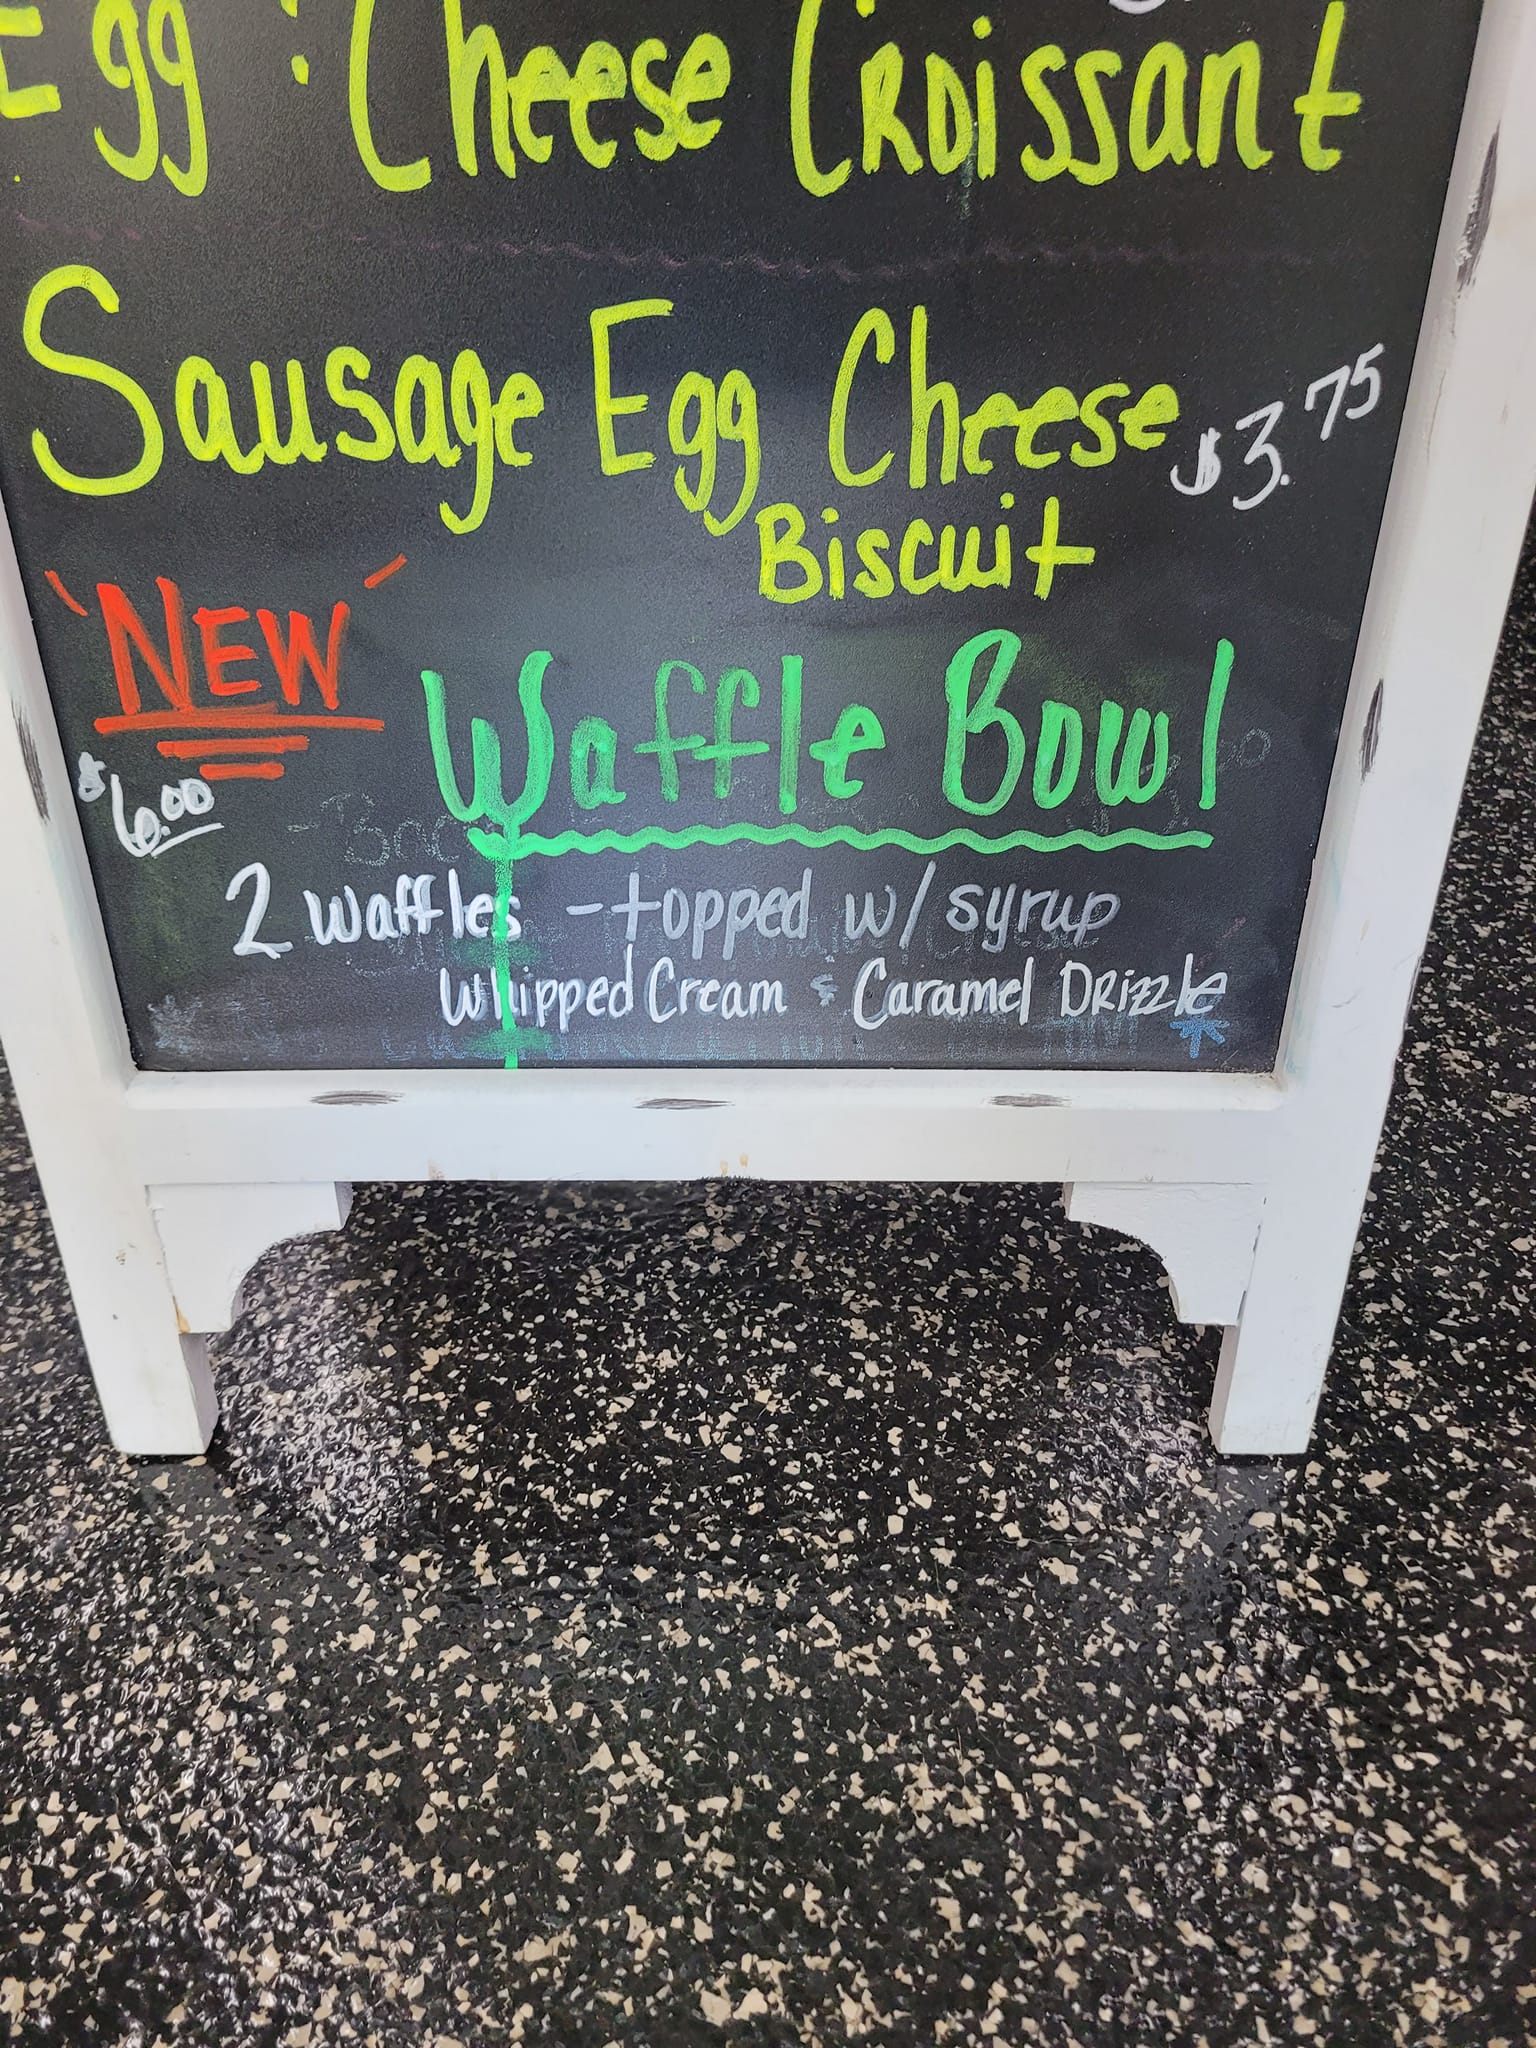 Egg & Cheese Croissant
Sausage Egg Cheese $3.75
Biscuit
"NEW"
Waffle Bowl
$6.00
2 waffles - topped w/ syrup
Whipped Cream & Caramel Drizzle